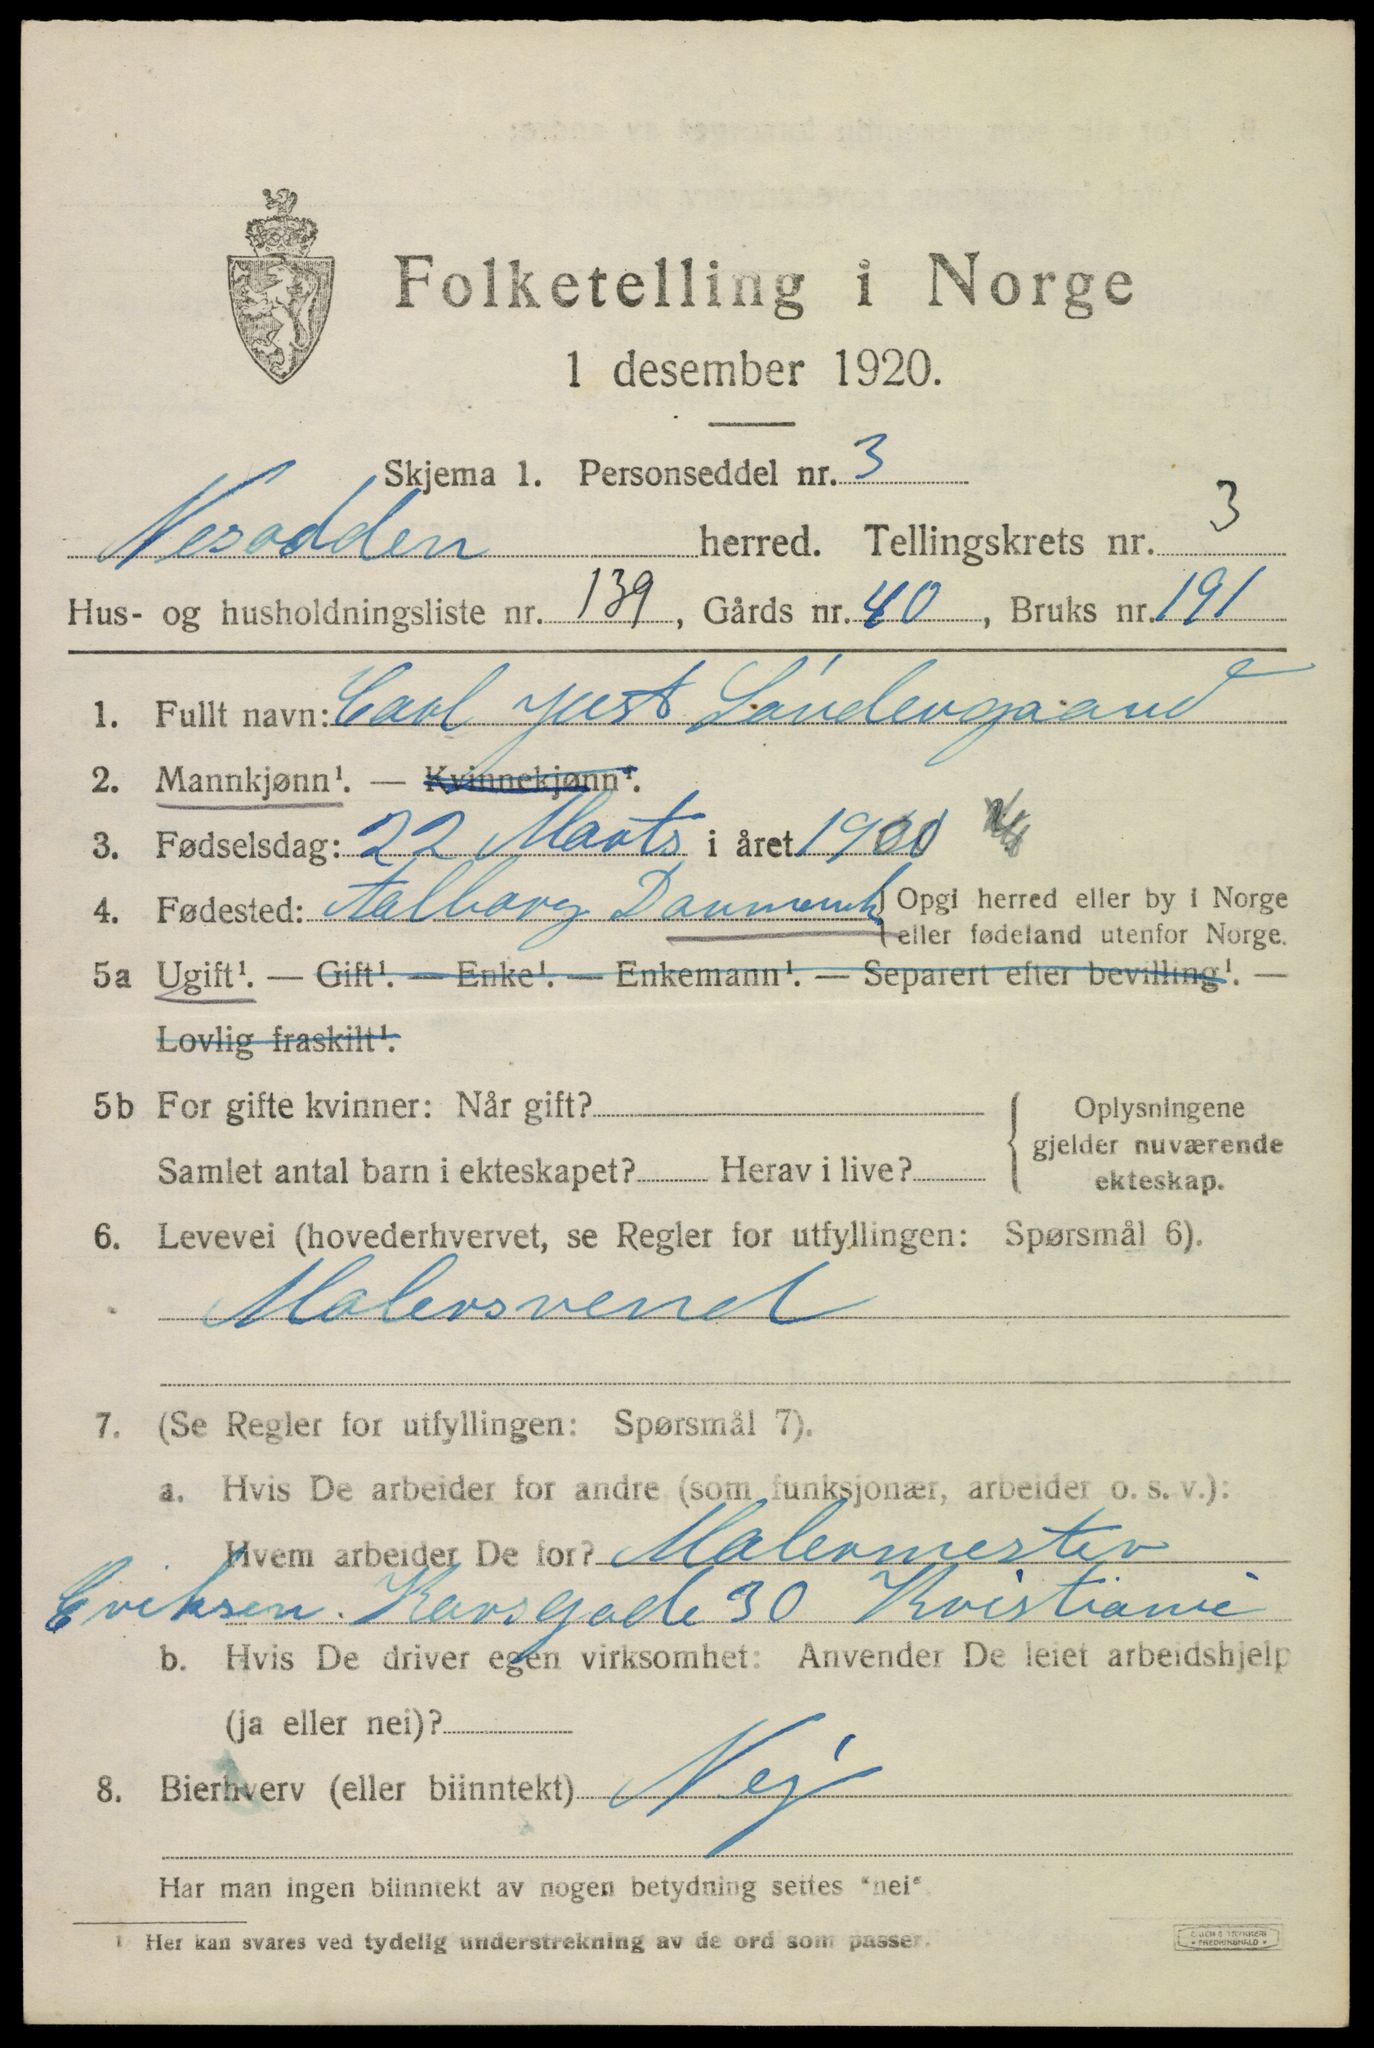 Folketelling i Norge
1 desember 1920.
Skjema 1. Personseddel nr. 3
Nesodden herred. Tellingskrets nr. 3
Hus- og husholdningsliste nr. 139, Gårds nr. 40, Bruks nr. 191
1. Fullt navn: Carl Just Söndergaard
2. Mannkjønn¹. — Kvinnekjønn¹.
3. Fødselsdag: 22 Marts i året 1901
4. Fødested: Aalborg Danmark { Opgi herred eller by i Norge
eller fødeland utenfor Norge.
5a Ugift¹. — Gift¹. — Enke¹. — Enkemann¹. — Separert efter bevilling¹. —
Lovlig fraskilt¹.
5b For gifte kvinner: Når gift? { Oplysningene
gjelder nuværende
Samlet antal barn i ekteskapet? Herav i live? ekteskap.
6. Levevei (hovederhvervet, se Regler for utfyllingen: Spørsmål 6).
Malersvend
7. (Se Regler for utfyllingen: Spørsmål 7).
a. Hvis De arbeider for andre (som funksjonær, arbeider o. s. v.):
Hvem arbeider De for? Malermester
Eriksen. Korsgade 30 Kristiania
b. Hvis De driver egen virksomhet: Anvender De leiet arbeidshjelp
(ja eller nei)?
8. Bierhverv (eller biinntekt) Nej
Har man ingen biinntekt av nogen betydning settes "nei"
¹ Her kan svares ved tydelig understrekning av de ord som passer.